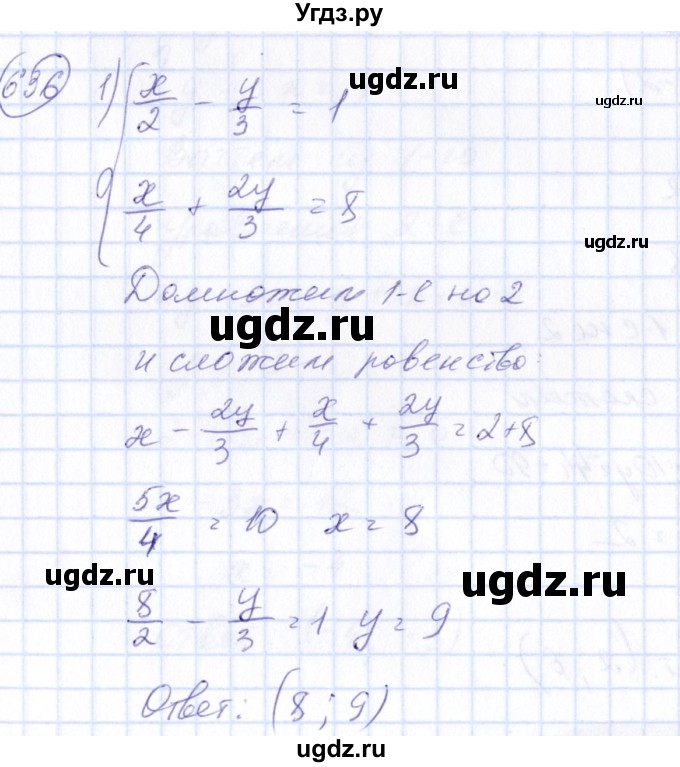 Угдз.ру
636 1) { x/2 - y/3 = 1
ugdz.ru
ugdz.ru
x/4 + 2y/3 = 8
ugdz.ru
Домножим 1-е на 2
ugdz.ru
и сложим равенство:
x - 2y/3 + x/4 + 2y/3 = 2+8
5x/4 = 10 x = 8
ugdz.ru
ugdz.ru
8/2 - y/3 = 1 y = 9
ugdz.ru
Ответ: (8; 9)
ugdz.ru